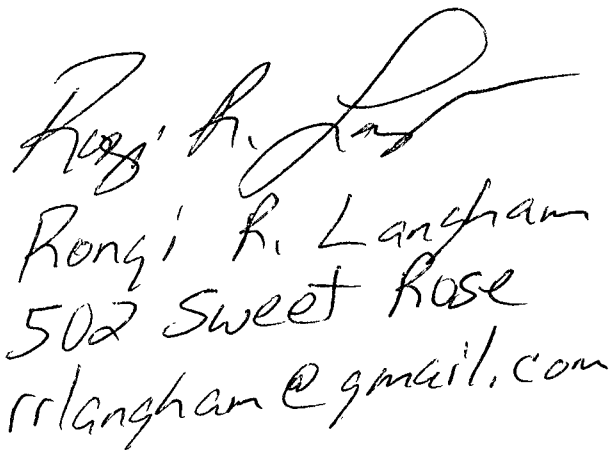 R. 
Rongi R. Langham
502 Sweet Rose
rrlangham@gmail.com